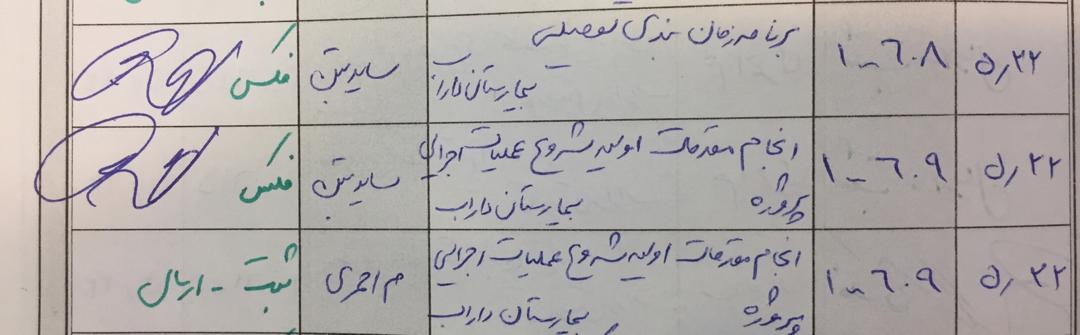 ۵٫۲۲ ۱-۶۰۸ برنامه زمان بندی تفصیلی سایت فکس
بیمارستان داراب
۵٫۲۲ ۱-۶۰۹ انجام مقدمات اولیه شروع عملیات اجرایی سایت فکس
پروژه بیمارستان داراب
۵٫۲۲ ۱-۶۰۹ انجام مقدمات اولیه شروع عملیات اجرایی م احمدی ثبت - ارسال
پروژه بیمارستان داراب